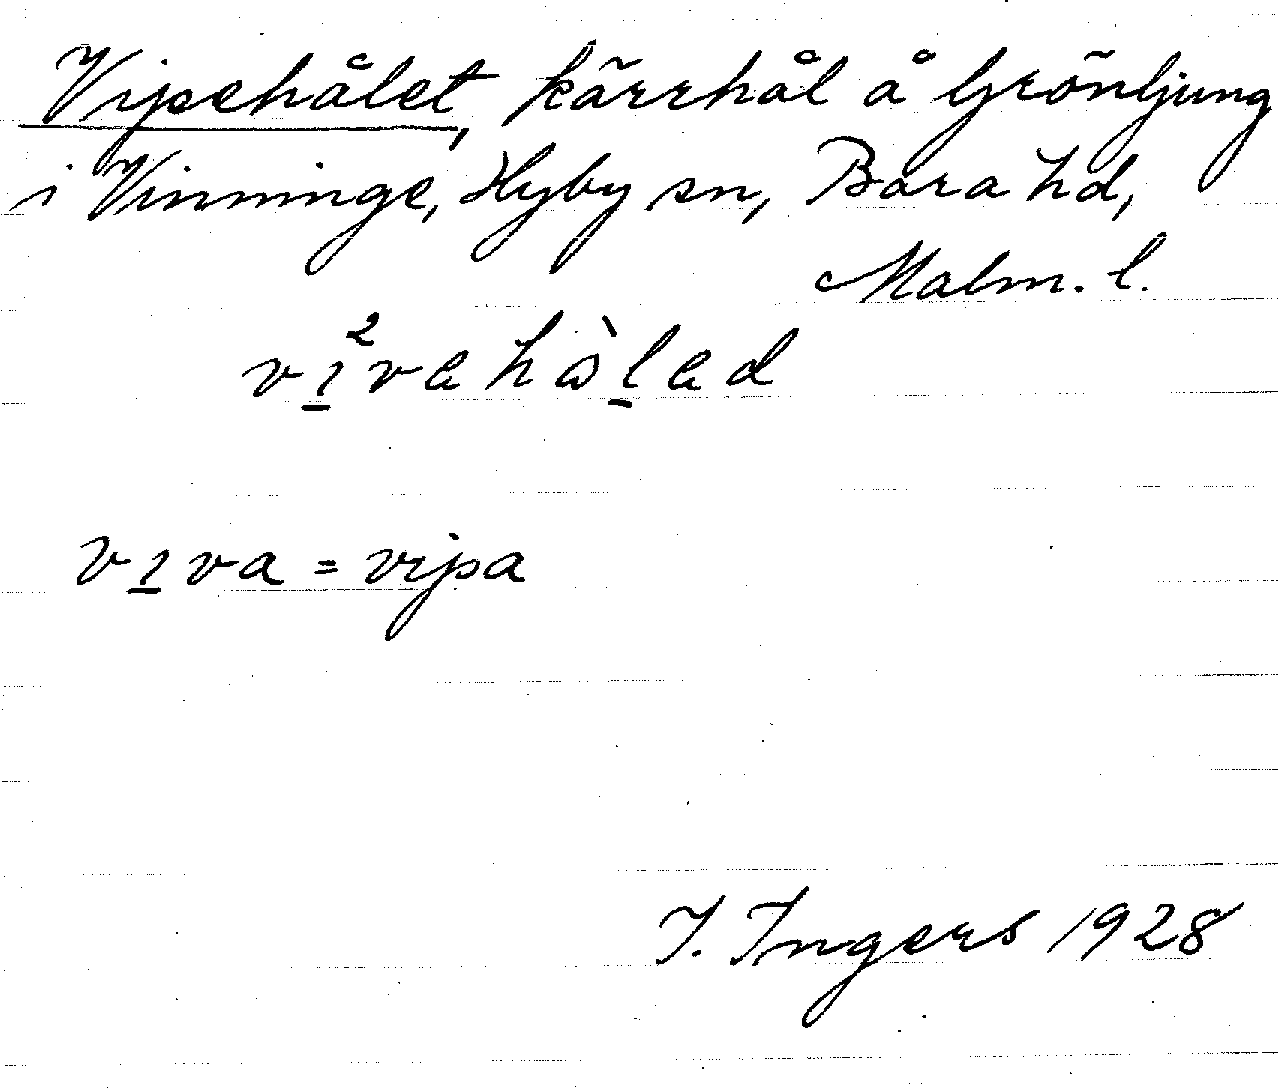 Vipehålet, kärrhål å Grönljung
i Vinninge, Hyby sn, Bara hd,
Malm. l.
vi²vahålad
viva = vipa
I. Ingers 1928